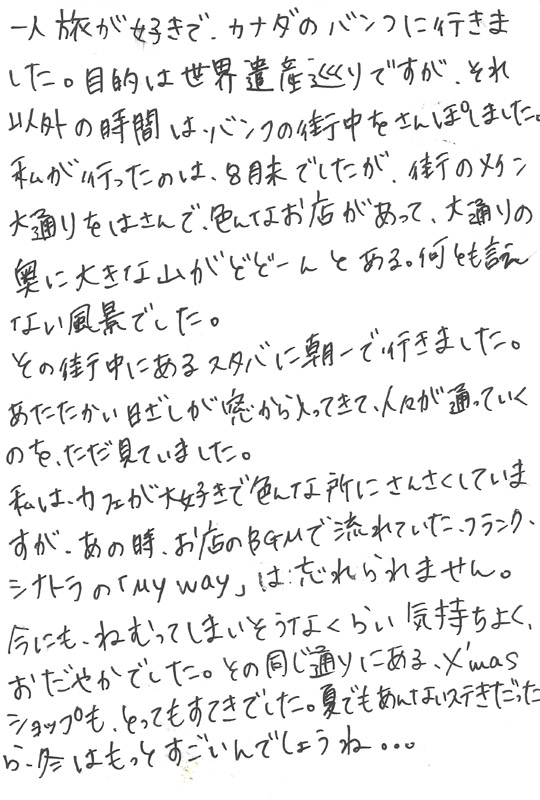 一人旅が好きで、カナダのバンフに行きま
した。目的は世界遺産巡りですが、それ
以外の時間は、バンフの街中をさんぽしました。
私が行ったのは、8月末でしたが、街のメイン
大通りをはさんで、色んなお店があって、大通りの
奥に大きな山がどどーんとある。何とも言え
ない風景でした。
その街中にあるスタバに朝一で行きました。
あたたかい日ざしが窓から入ってきて、人々が通っていく
のを、ただ見ていました。
私は、カフェが大好きで色んな所にさんさくしていま
すが、あの時、お店のBGMで流れていた、フランク・
シナトラの「My way」は忘れられません。
今にも、ねむってしまいそうなくらい気持ちよく、
おだやかでした。その同じ通りにある、X'mas
ショップも、とってもすてきでした。夏でもあんなにステきだった
ら、冬はもっとすごいんでしょうね...